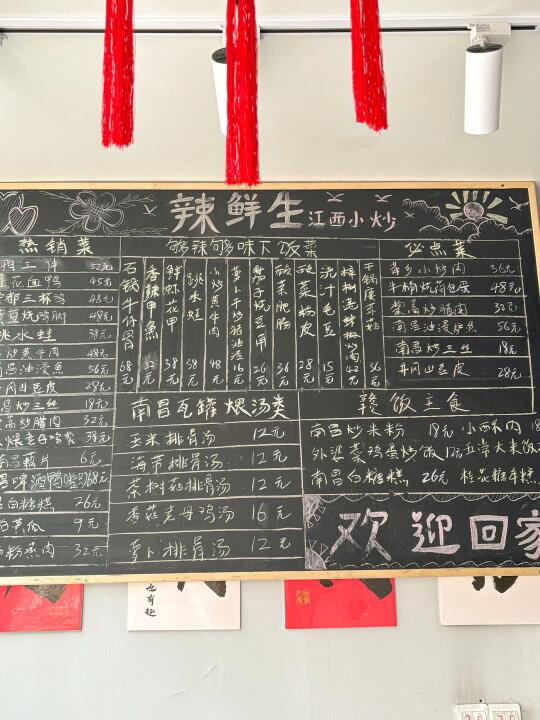 辣鲜生 江西小炒
热销菜
鸭三件 52元
莲花血鸭 45元
宁都三杯鸡 48元
48元
跳水蛙 38元
炒黄牛肉 48元
南昌油浸鱼 56元
井冈山豆皮 28元
昌炒三丝 18元
高炒腊肉 32元
38元
昌藕片 6元
啤酒鸭 68元
白糖糕 26元
黄瓜 9元
粉蒸肉 32元
够辣够味下饭菜
石锅牛仔骨 68元
香辣甲鱼 52元
鲜虾花甲 38元
跳水蛙 38元
小炒黄牛肉 48元
萝卜干炒猪油渣 16元
茄子烧豆角 26元
酸菜肥肠 36元
酸菜粉皮 28元
汁毛豆 15元
42元
干锅 36元
必点菜
萍乡小炒肉 36元
牛楠烧荷包蛋 48元
梨高炒腊肉 32元
南昌油浸炸鱼 56元
南昌炒三丝 18元
井冈山豆皮 28元
南昌瓦罐煨汤类
玉米排骨汤 12元
海带排骨汤 12元
茶树菇排骨汤 12元
香菇老母鸡汤 16元
萝卜排骨汤 12元
赣饭主食
南昌炒米粉 18元 小西不肉 18
外婆菜鸡蛋炒饭 12元 五常大米饭
南昌白糖糕 26元 桂花糖年糕
欢迎回家
也有趣